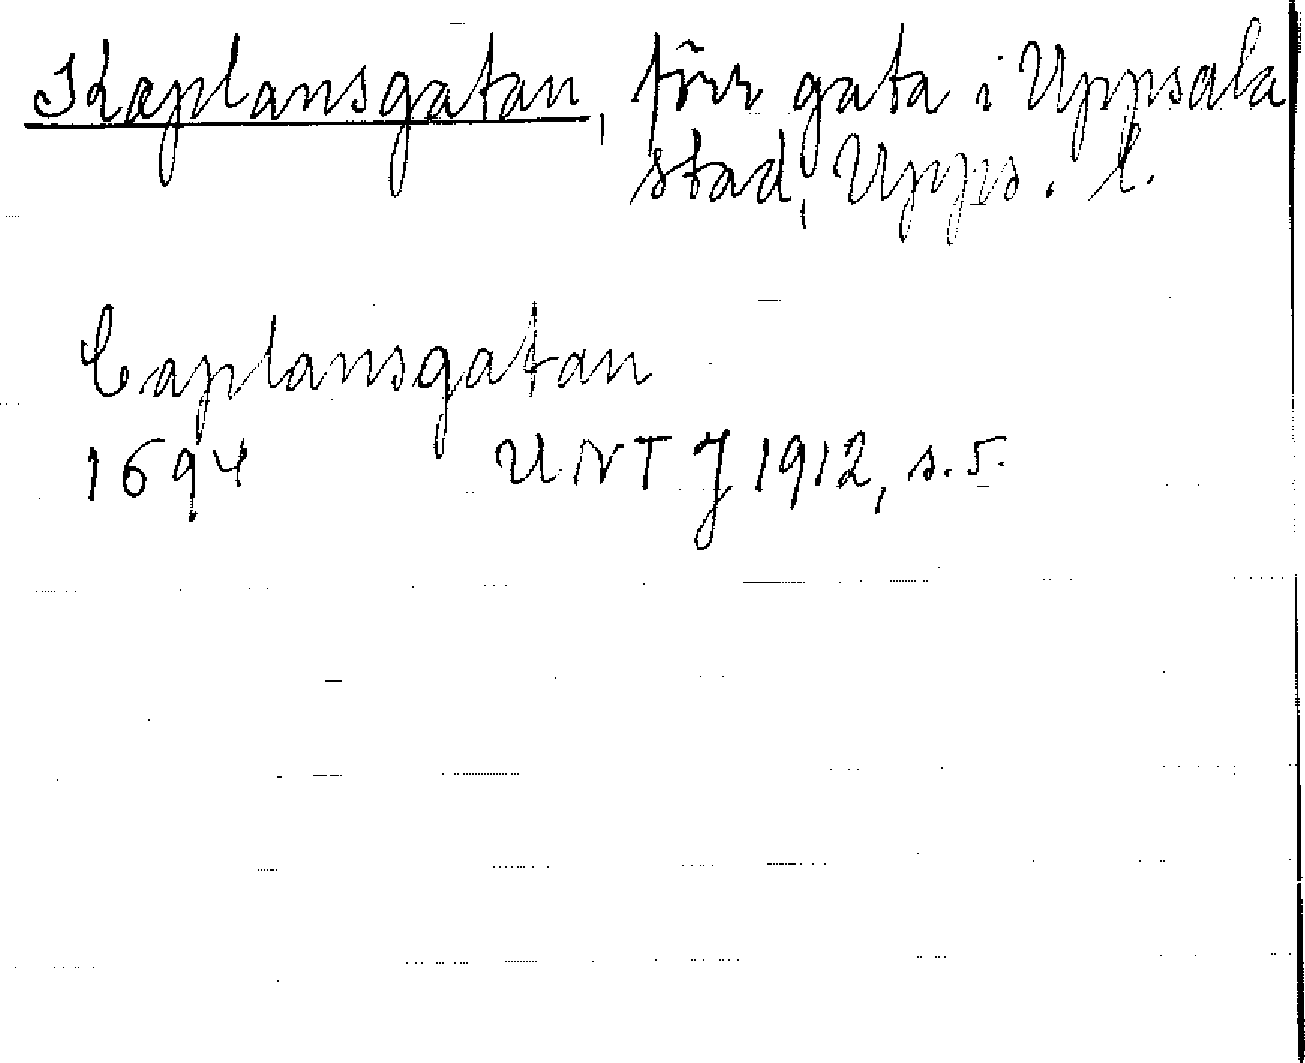 Kaplansgatan, förr gata i Uppsala
stad, Upps. l.
Caplansgatan
1694 UNT J 1912, s. 5.